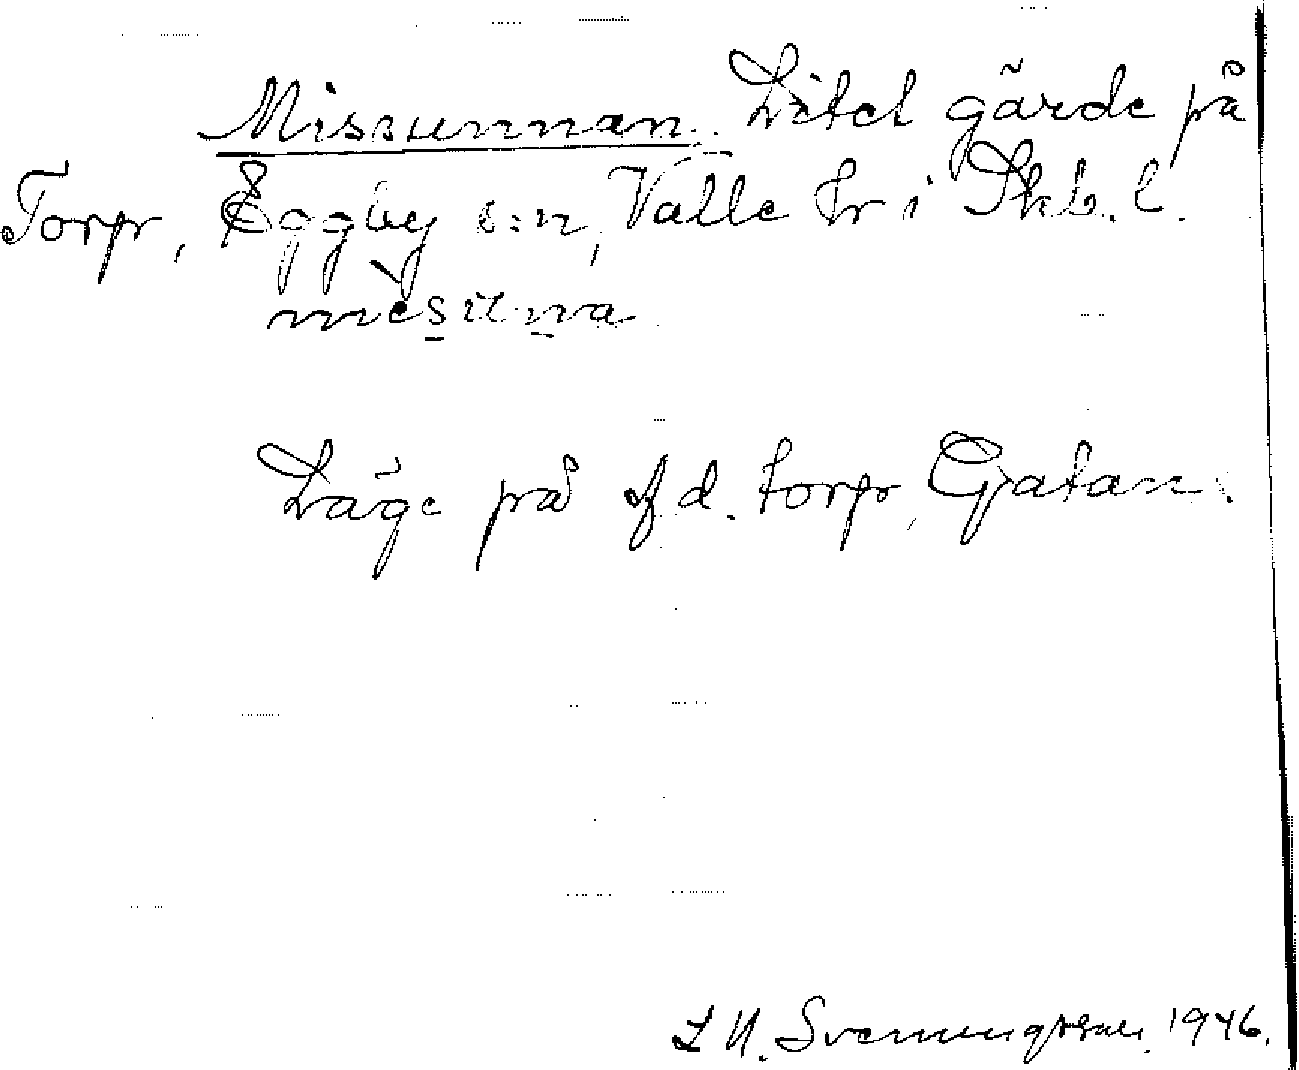 Missunnan. Litet gärde på
Torp, Eggby s:n, Valle hr i Skb. l.
mèsuna
Läge på f d. torp, Gatan.
L N. Svenungsson. 1946.